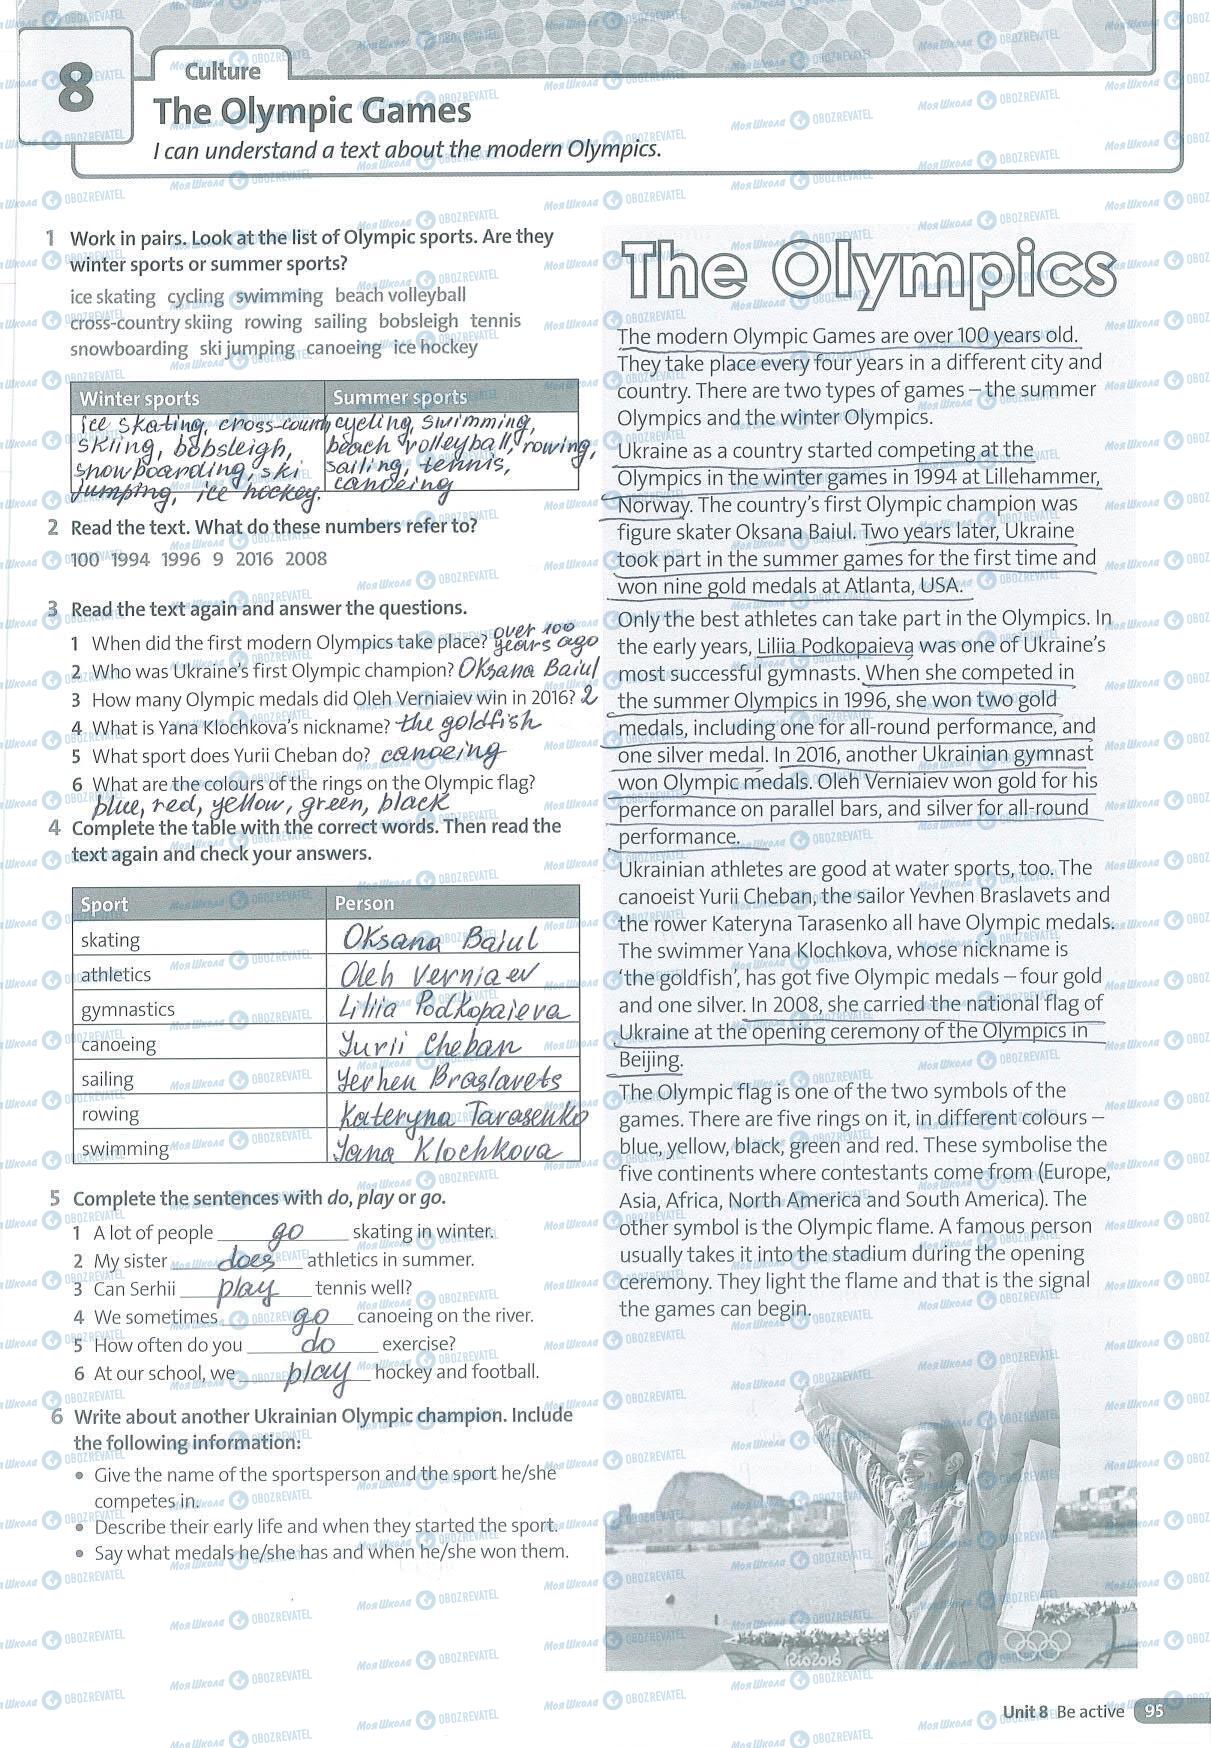 8
Culture
The Olympic Games
I can understand a text about the modern Olympics.
1 Work in pairs. Look at the list of Olympic sports. Are they
winter sports or summer sports?
ice skating cycling swimming beach volleyball
cross-country skiing rowing sailing bobsleigh tennis
snowboarding ski jumping canoeing ice hockey
Winter sports Summer sports
ice skating, cross-countr cycling, swimming,
skiing, bobsleigh, beach volleyball, rowing,
snowboarding, ski sailing, tennis,
jumping, ice hockey. canoeing
2 Read the text. What do these numbers refer to?
100 1994 1996 9 2016 2008
3 Read the text again and answer the questions.
1 When did the first modern Olympics take place? over 100 years ago
2 Who was Ukraine's first Olympic champion? Oksana Baiul
3 How many Olympic medals did Oleh Verniaiev win in 2016? 2
4 What is Yana Klochkova's nickname? the goldfish
5 What sport does Yurii Cheban do? canoeing
6 What are the colours of the rings on the Olympic flag?
blue, red, yellow, green, black
4 Complete the table with the correct words. Then read the
text again and check your answers.
Sport Person
skating Oksana Baiul
athletics Oleh Verniaev
gymnastics Liliia Podkopaieva
canoeing Yurii Cheban
sailing Yevhen Braslavets
rowing Kateryna Tarasenko
swimming Yana Klochkova
5 Complete the sentences with do, play or go.
1 A lot of people go skating in winter.
2 My sister does athletics in summer.
3 Can Serhii play tennis well?
4 We sometimes go canoeing on the river.
5 How often do you do exercise?
6 At our school, we play hockey and football.
6 Write about another Ukrainian Olympic champion. Include
the following information:
• Give the name of the sportsperson and the sport he/she
competes in.
• Describe their early life and when they started the sport.
• Say what medals he/she has and when he/she won them.
The Olympics
The modern Olympic Games are over 100 years old.
They take place every four years in a different city and
country. There are two types of games – the summer
Olympics and the winter Olympics.
Ukraine as a country started competing at the
Olympics in the winter games in 1994 at Lillehammer,
Norway. The country's first Olympic champion was
figure skater Oksana Baiul. Two years later, Ukraine
took part in the summer games for the first time and
won nine gold medals at Atlanta, USA.
Only the best athletes can take part in the Olympics. In
the early years, Liliia Podkopaieva was one of Ukraine's
most successful gymnasts. When she competed in
the summer Olympics in 1996, she won two gold
medals, including one for all-round performance, and
one silver medal. In 2016, another Ukrainian gymnast
won Olympic medals. Oleh Verniaiev won gold for his
performance on parallel bars, and silver for all-round
performance.
Ukrainian athletes are good at water sports, too. The
canoeist Yurii Cheban, the sailor Yevhen Braslavets and
the rower Kateryna Tarasenko all have Olympic medals.
The swimmer Yana Klochkova, whose nickname is
'the goldfish', has got five Olympic medals – four gold
and one silver. In 2008, she carried the national flag of
Ukraine at the opening ceremony of the Olympics in
Beijing.
The Olympic flag is one of the two symbols of the
games. There are five rings on it, in different colours –
blue, yellow, black, green and red. These symbolise the
five continents where contestants come from (Europe,
Asia, Africa, North America and South America). The
other symbol is the Olympic flame. A famous person
usually takes it into the stadium during the opening
ceremony. They light the flame and that is the signal
the games can begin.
Rio2016
Unit 8 Be active 95
Моя Школа OBOZREVATEL